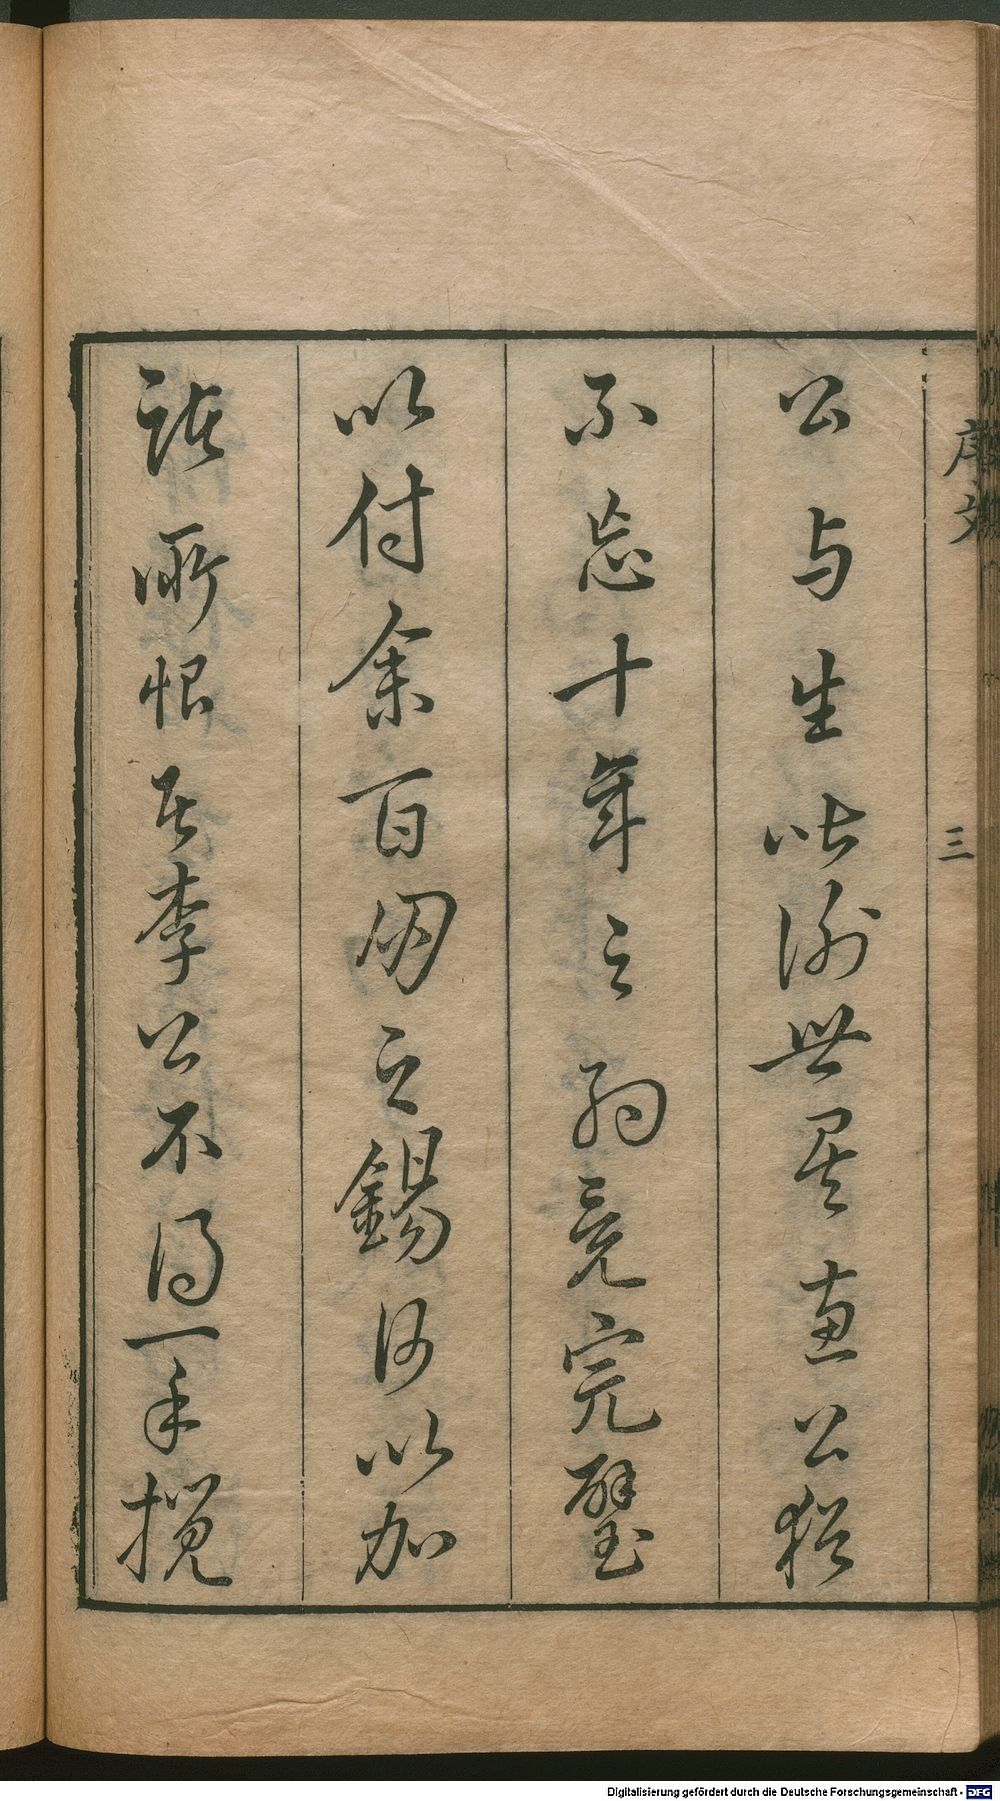 序文
三
公与生皆謝世吴惠公猶
不忘十年之約竟完璧
以付余百朋之錫何以加
諸所恨者李公不得一手攬
Digitalisierung gefördert durch die Deutsche Forschungsgemeinschaft - DFG